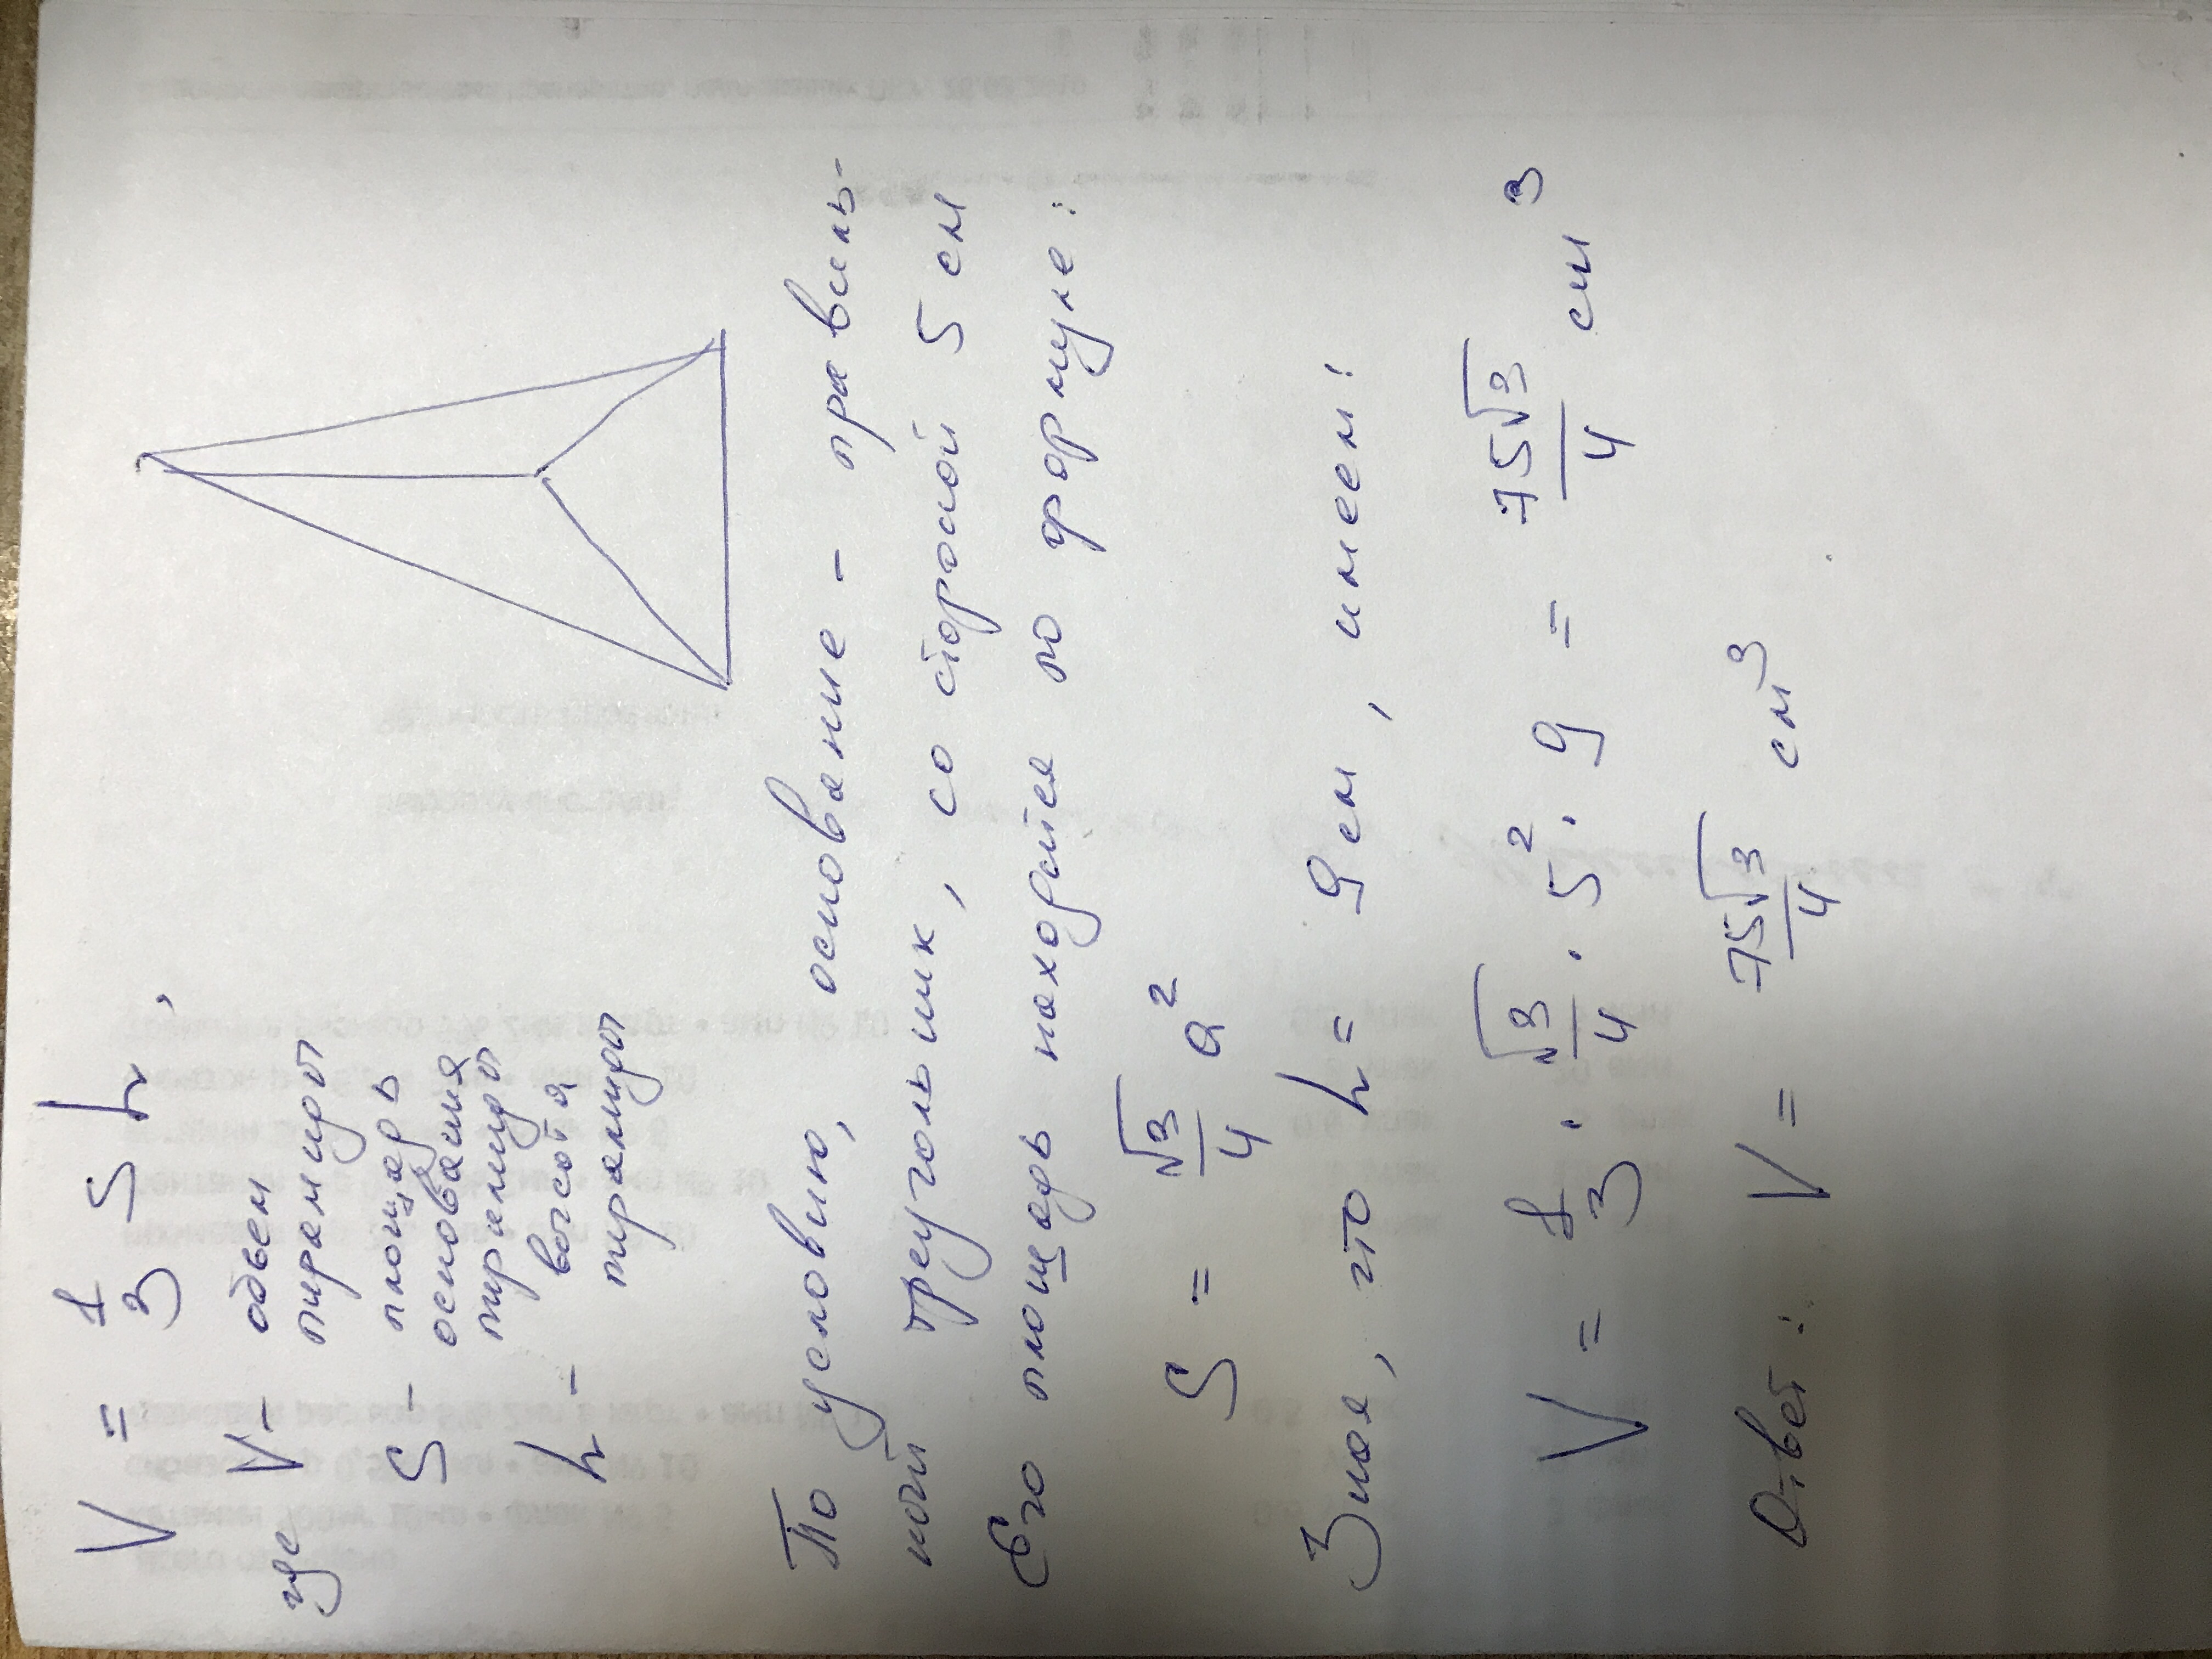 V = 1/3 S h,
где V - обьем
пирамиды
S - площадь
основания
пирамиды
h - высота
пирамиды
По условию, основание - правиль-
ной треугольник, со стороной 5 см
Его площадь находится по формуле:
S = √3/4 a²
Зная, что h = 9 см, имеем:
V = 1/3 · √3/4 · 5² · 9 = 75√3/4 см³
Ответ: V = 75√3/4 см³